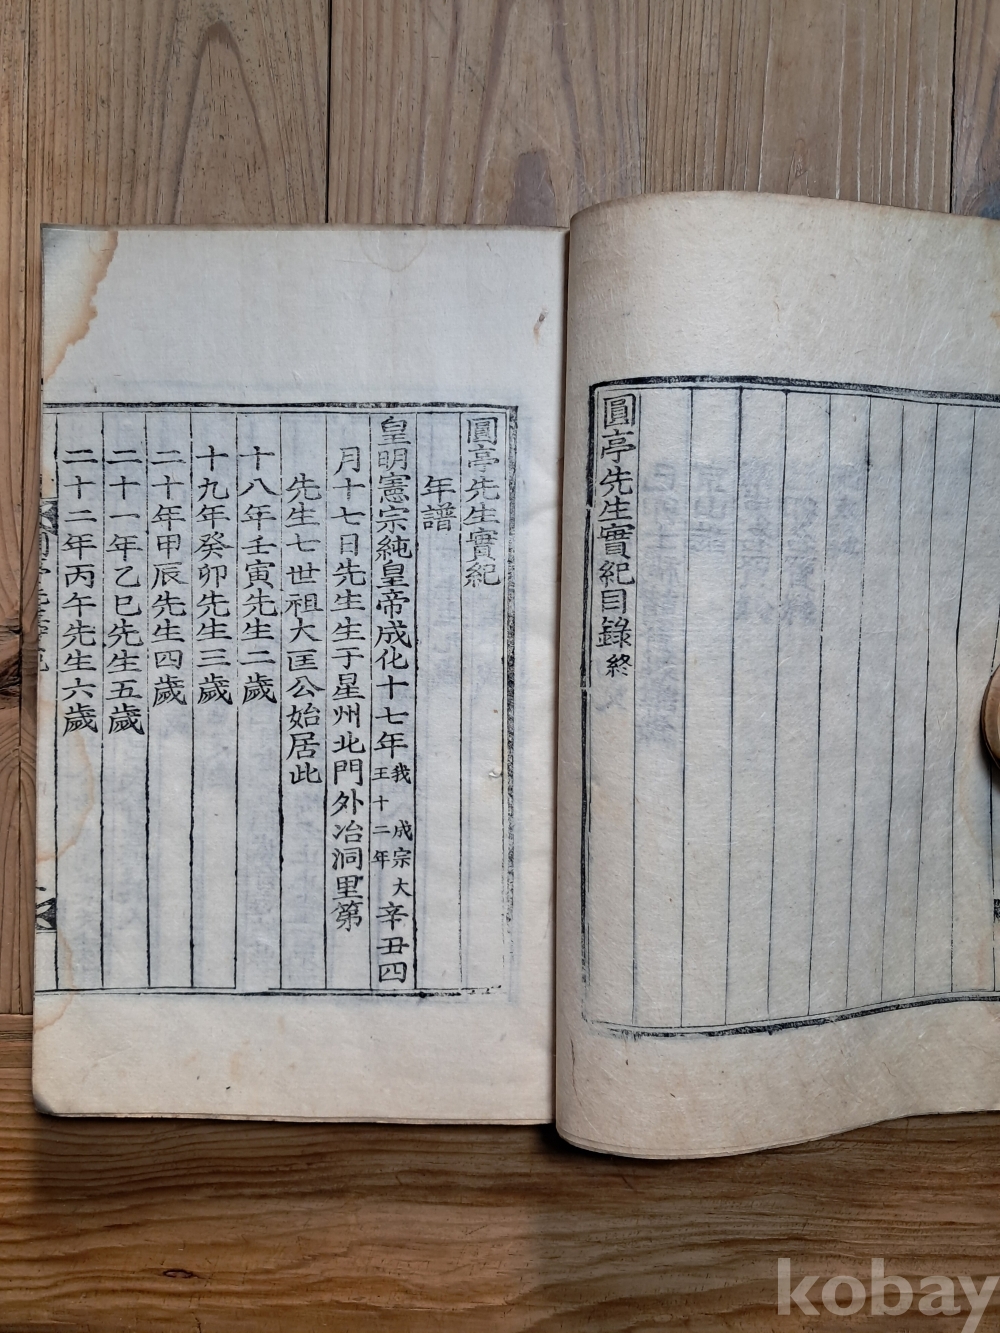 圓亭先生實紀目錄終
圓亭先生實紀
年譜
皇明憲宗純皇帝成化十七年我 成宗大王十二年辛丑四
月十七日先生生于星州北門外冶洞里第
先生七世祖大匡公始居此
十八年壬寅先生二歲
十九年癸卯先生三歲
二十年甲辰先生四歲
二十一年乙巳先生五歲
二十二年丙午先生六歲
kobay